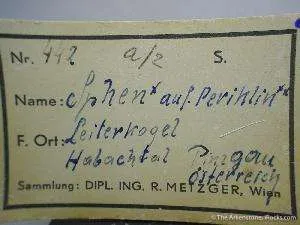 Nr. 442 a/2 S.
Name: Sphen x auf. Periklin x
F. Ort: Leiterkogel
Habachtal Pinzgau
Österreich
Sammlung: DIPL. ING. R. METZGER, Wien
© The Arkenstone, iRocks.com